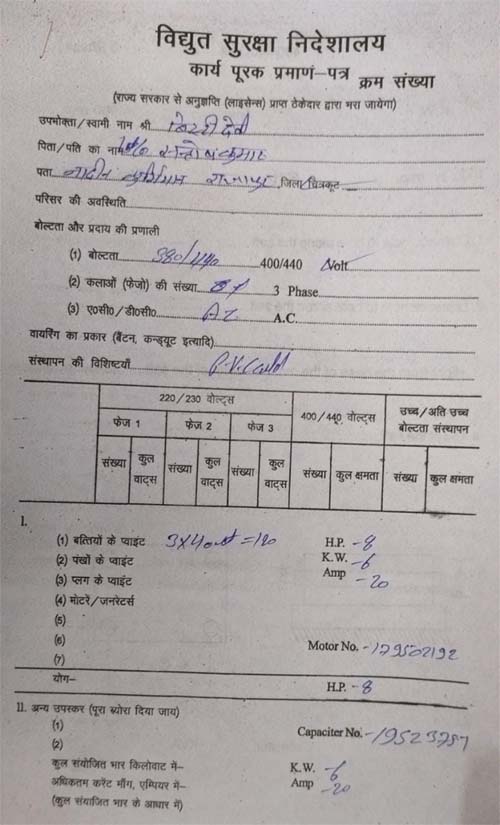 विद्युत सुरक्षा निदेशालय
कार्य पूरक प्रमाण-पत्र क्रम संख्या
(राज्य सरकार से अनुज्ञप्ति (लाइसेन्स) प्राप्त ठेकेदार द्वारा भरा जायेगा)
उपभोक्ता/स्वामी नाम श्री देवी
पिता/पति का नाम
पता जिला/चित्रकूट
परिसर की अवस्थिति
बोल्टता और प्रदाय की प्रणाली
(1) बोल्टता 380/440 400/440 Volt
(2) कलाओं (फेजो) की संख्या 3 Phase
(3) ए०सी०/डी०सी० A.C.
वायरिंग का प्रकार (बैंटन, कन्ड्यूट इत्यादि)
संस्थापन की विशिष्टयाँ
220/230 वोल्ट्स 400/440 वोल्ट्स उच्च/अति उच्च बोल्टता संस्थापन
फेज 1 फेज 2 फेज 3
संख्या कुल वाट्स संख्या कुल वाट्स संख्या कुल वाट्स संख्या कुल क्षमता संख्या कुल क्षमता
I.
(1) बत्तियों के प्वाइंट 3X40 =120 H.P. -8
(2) पंखों के प्वाइंट K.W. -6
(3) प्लग के प्वाइंट Amp -20
(4) मोटरें/जनरेटर्स
(5)
(6) Motor No. -179502192
(7)
योग- H.P. -8
II. अन्य उपस्कर (पूरा ब्योरा दिया जाय)
(1) Capaciter No.
(2)
कुल संयोजित भार किलोवाट में- K.W. -6
अधिकतम करेंट माँग, एम्पियर में- Amp -20
(कुल संयाजित भार के आधार में)